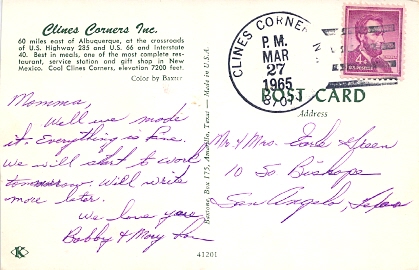 Clines Corners Inc.
60 miles east of Albuquerque, at the crossroads
of U.S. Highway 285 and U.S. 66 and Interstate
40. Best in meals, one of the most complete res-
taurant, service station and gift shop in New
Mexico. Cool Clines Corners, elevation 7200 feet.
Color by Baxter
Momma,
Well we made
it. Everything is fine.
We will start to work
tomorrow. Will write
more later.
We love you,
Bobby & Mary Lou
K
41201
Baxtone, Box 175, Amarillo, Texas — Made in U.S.A.
CLINES CORNERS, N.
P. M.
MAR
27
1965
4¢
POST CARD
Address
Mr. & Mrs. Earle Green
10 So Bishops
San Angelo, Texas